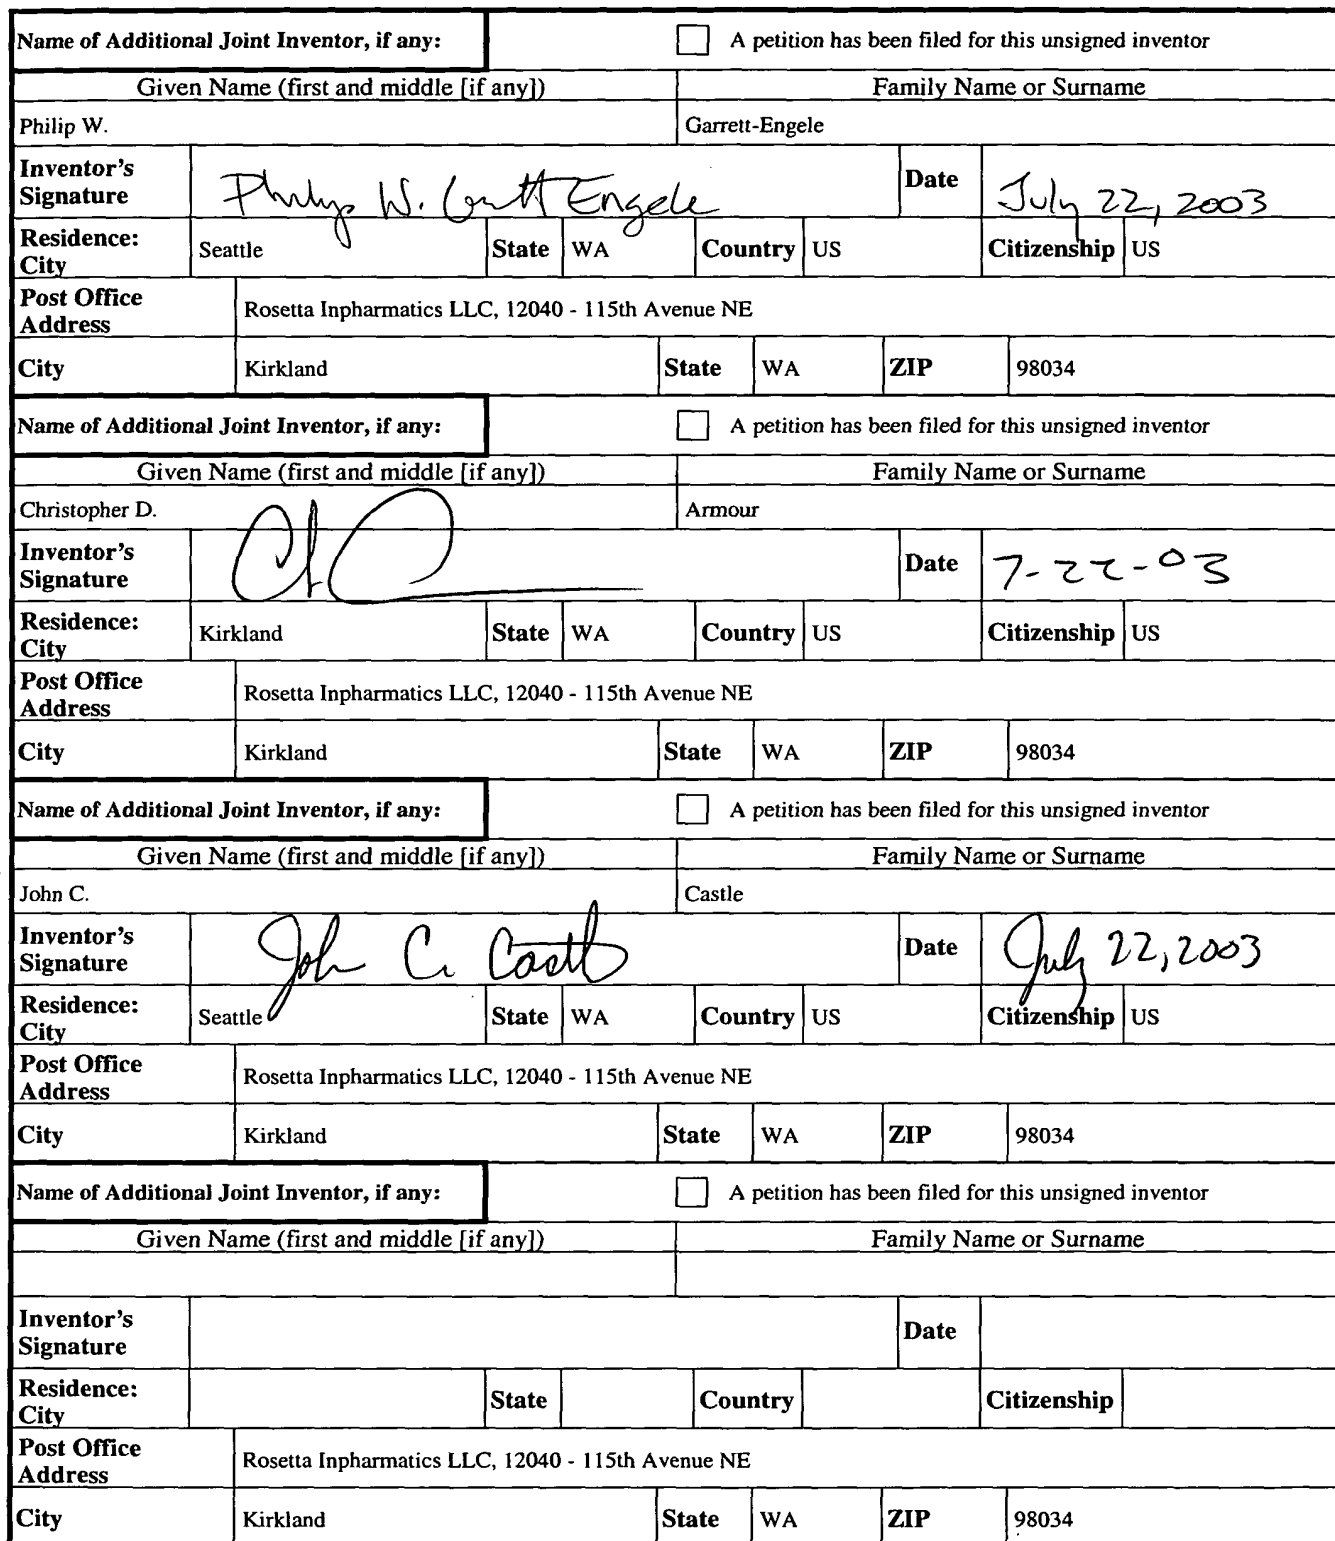 Name of Additional Joint Inventor, if any: A petition has been filed for this unsigned inventor
Given Name (first and middle [if any]) Family Name or Surname
Philip W. Garrett-Engele
Inventor's Signature Philip W. Garrett Engele Date July 22, 2003
Residence: City Seattle State WA Country US Citizenship US
Post Office Address Rosetta Inpharmatics LLC, 12040 - 115th Avenue NE
City Kirkland State WA ZIP 98034
Name of Additional Joint Inventor, if any: A petition has been filed for this unsigned inventor
Given Name (first and middle [if any]) Family Name or Surname
Christopher D. Armour
Inventor's Signature Date 7-22-03
Residence: City Kirkland State WA Country US Citizenship US
Post Office Address Rosetta Inpharmatics LLC, 12040 - 115th Avenue NE
City Kirkland State WA ZIP 98034
Name of Additional Joint Inventor, if any: A petition has been filed for this unsigned inventor
Given Name (first and middle [if any]) Family Name or Surname
John C. Castle
Inventor's Signature John C. Castle Date July 22, 2003
Residence: City Seattle State WA Country US Citizenship US
Post Office Address Rosetta Inpharmatics LLC, 12040 - 115th Avenue NE
City Kirkland State WA ZIP 98034
Name of Additional Joint Inventor, if any: A petition has been filed for this unsigned inventor
Given Name (first and middle [if any]) Family Name or Surname
Inventor's Signature Date
Residence: City State Country Citizenship
Post Office Address Rosetta Inpharmatics LLC, 12040 - 115th Avenue NE
City Kirkland State WA ZIP 98034